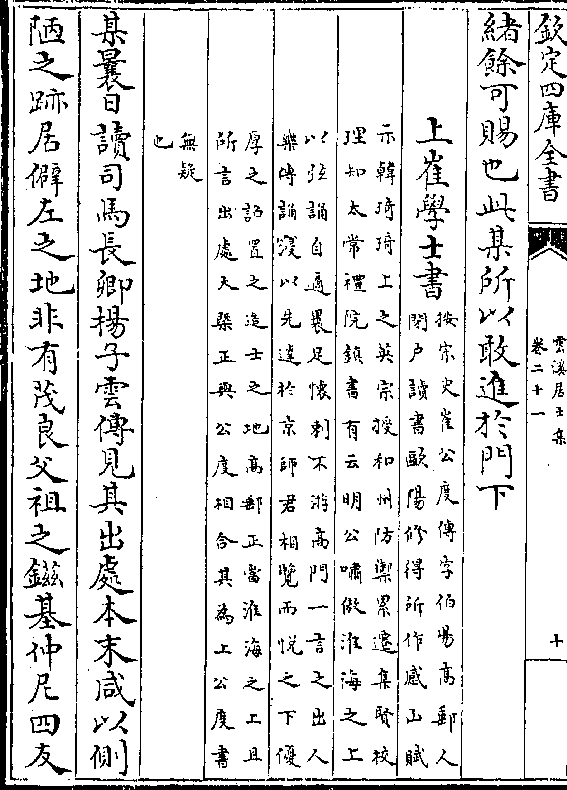 欽定四庫全書
雲溪居士集
卷二十一
十
緒餘可賜也此某所以敢進於門下
上崔學士書
按宋史崔公度傳字伯易高郵人
閉户讀書歐陽修得所作感山賦
示韓琦琦上之英宗授和州防禦累遷集賢校
理知太常禮院鎮書有云明公嘯傲淮海之上
以弦誦自適褁足懷刺不游高門一言之出人
樂傳誦寖以先達於京師君相覽而悦之下優
厚之詔置之造士之地高郵正當淮海之上且
所言出處大槩正與公度相合其為上公度書
無疑
也
某曩日讀司馬長卿楊子雲傳見其出處本末咸以側
陋之跡居僻左之地非有茂良父祖之鎡基仲尼四友